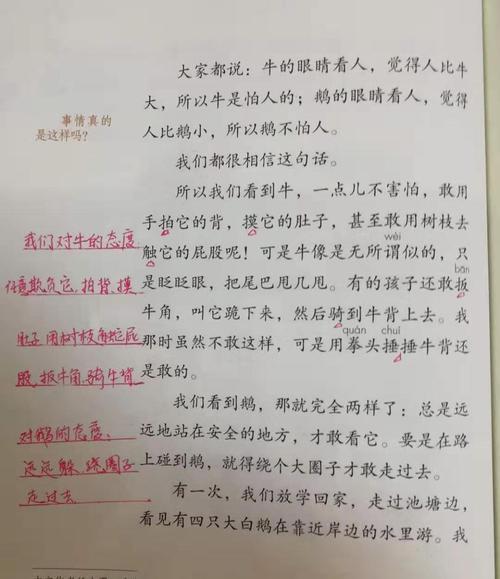 大家都说：牛的眼睛看人，觉得人比牛
大，所以牛是怕人的；鹅的眼睛看人，觉得
人比鹅小，所以鹅不怕人。
我们都很相信这句话。
所以我们看到牛，一点儿不害怕，敢用
手拍它的背，摸它的肚子，甚至敢用树枝去
触它的屁股呢！可是牛像是无所谓似的，只
wèi
是眨眨眼，把尾巴甩几甩。有的孩子还敢扳
bān
牛角，叫它跪下来，然后骑到牛背上去。我
那时虽然不敢这样，可是用拳头捶捶牛背还
quán chuí
是敢的。
我们看到鹅，那就完全两样了：总是远
远地站在安全的地方，才敢看它。要是在路
上碰到鹅，就得绕个大圈子才敢走过去。
有一次，我们放学回家，走过池塘边，
看见有四只大白鹅在靠近岸边的水里游。我
事情真的
是这样吗？
我们对牛的态度
任意欺负它，拍背、摸
肚子 用树枝触屁
股、扳牛角、骑牛背
对鹅的态度：
远远躲、绕圈子
走过去